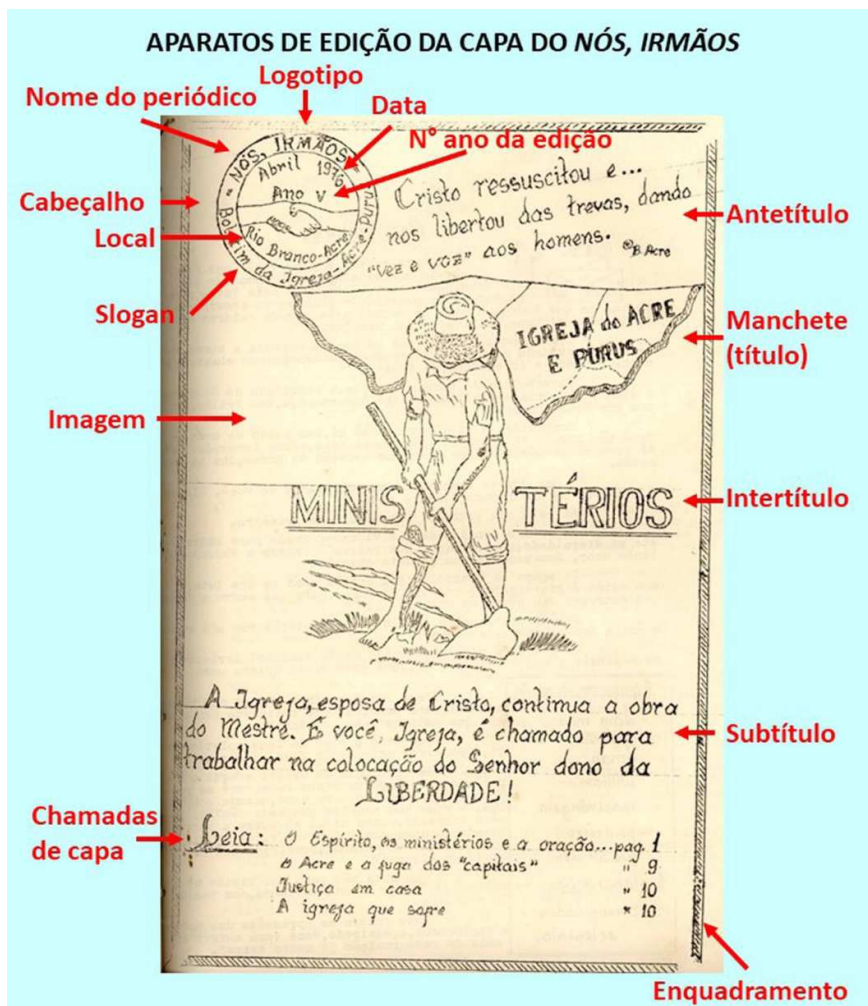 APARATOS DE EDIÇÃO DA CAPA DO NÓS, IRMÃOS
Logotipo
Nome do periódico
Data
N° ano da edição
Cabeçalho
Local
Slogan
Imagem
Chamadas
de capa
Antetítulo
Manchete
(título)
Intertítulo
Subtítulo
Enquadramento
"NÓS, IRMÃOS"
Abril 1976
Ano V
Rio Branco-Acre
Boletim da Igreja-Acre-Purus
Cristo ressuscitou e...
nos libertou das trevas, dando
"vez e voz" aos homens.
B. Acre
IGREJA do ACRE
E PURUS
MINISTÉRIOS
A Igreja, esposa de Cristo, continua a obra
do Mestre. E você, Igreja, é chamado para
trabalhar na colocação do Senhor dono da
LIBERDADE!
Leia: O Espírito, os ministérios e a oração...pag. 1
O Acre e a fuga dos "capitais" " 9
Justiça em casa " 10
A igreja que sofre " 10